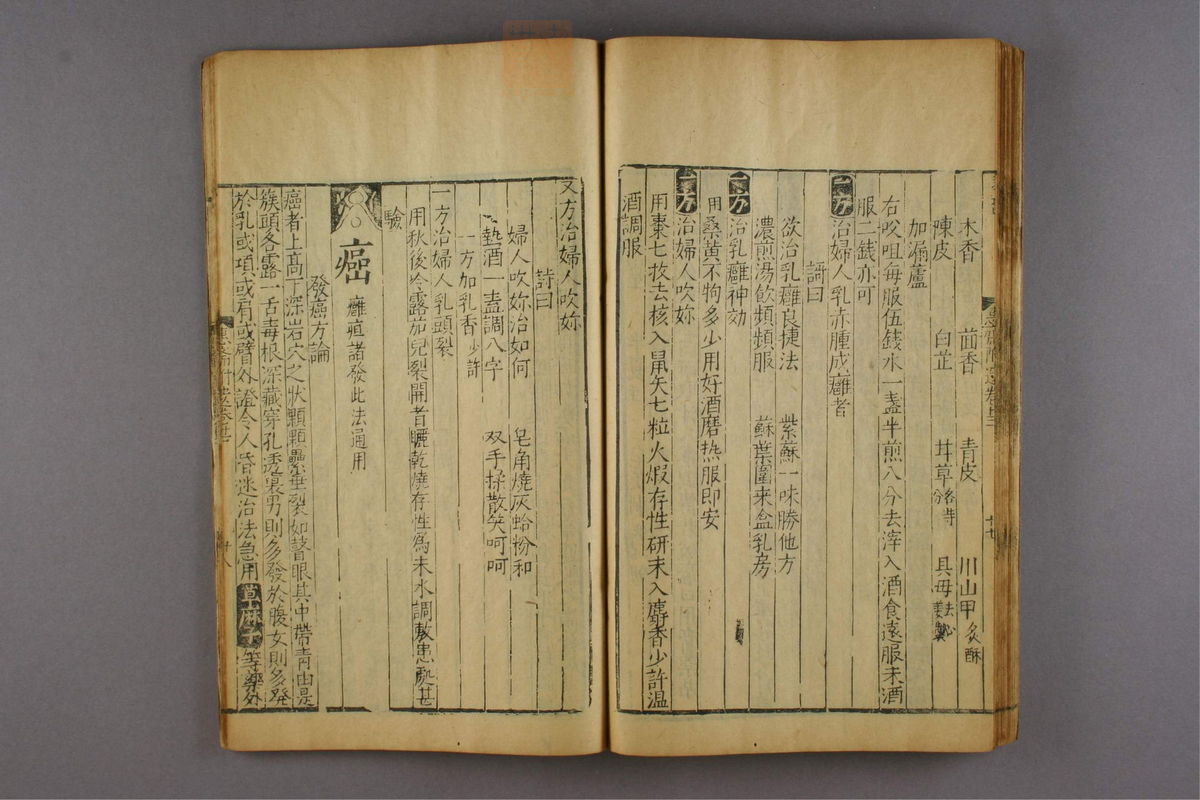 木香 茴香 青皮 川山甲炙酥
陳皮 白芷 甘草各等 貝母去心
加漏蘆
右㕮咀每服伍錢水一盞半煎八分去滓入酒食遠服末酒
服二錢亦可
一方治婦人乳赤腫成癰者
詩曰
欲治乳癰良捷法 紫蘇一味勝他方
濃煎湯飲頻頻服 蘇葉圍來盒乳房
一方治乳癰神効
用桑黃不拘多少用好酒磨热服即安
一方治婦人吹妳
用棗七枚去核入鼠矢七粒火煅存性研末入麝香少許温
酒調服
又方治婦人吹妳
詩曰
婦人吹妳治如何 皂角燒灰蛤粉和
熱酒一盞調八字 双手揉散笑呵呵
一方加乳香少許
一方治婦人乳頭裂
用秋後冷露茄兒裂開者曬乾燒存性為末水調敷患處甚
驗
癌 癰疽諸發此法通用
發癌方論
癌者上高下深岩穴之狀顆顆纍垂裂如瞽眼其中帶青由是
簇頭各露一舌毒根深藏穿孔透裏男則多發於腹女則多發
於乳或項或肩或臂外證令人昏迷治法急用萆麻子等藥外